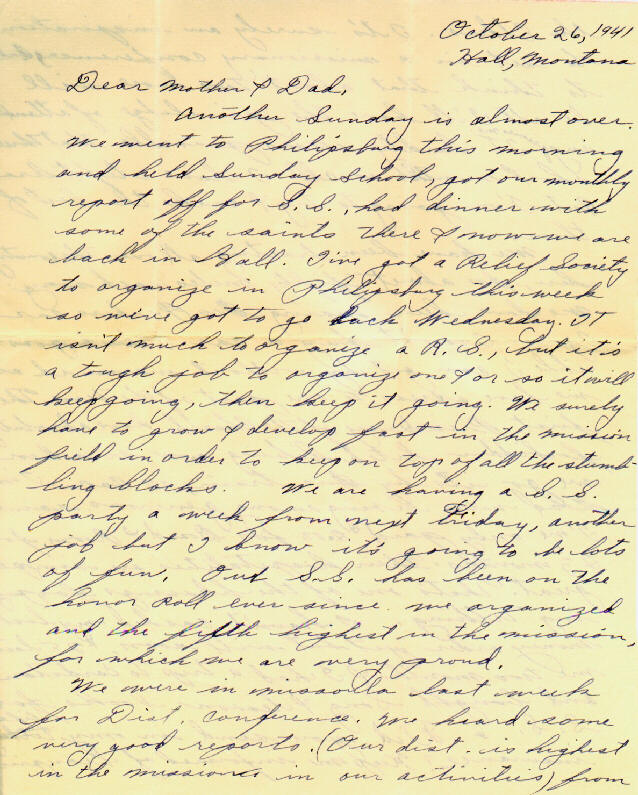 October 26, 1941
Hall, Montana
Dear Mother & Dad,
Another Sunday is almost over.
We went to Philipsburg this morning
and held Sunday School, got our monthly
report off for S.S., had dinner with
some of the saints there & now we are
back in Hall. I've got a Relief Society
to organize in Philipsburg this week
so we've got to go back Wednesday. It
isn't much to organize a R.S., but it's
a tough job to organize one & or so it will
keep going, then keep it going. We surely
have to grow & develop fast in the mission
field in order to keep on top of all the stumb-
ling blocks. We are having a S.S.
party a week from next Friday, another
job but I know it's going to be lots
of fun. Our S.S. has been on the
honor roll ever since we organized
and the fifth highest in the mission,
for which we are very proud.
We were in Missoula last week
for Dist. conference. We heard some
very good reports. (Our dist. is highest
in the mission in our activities) from